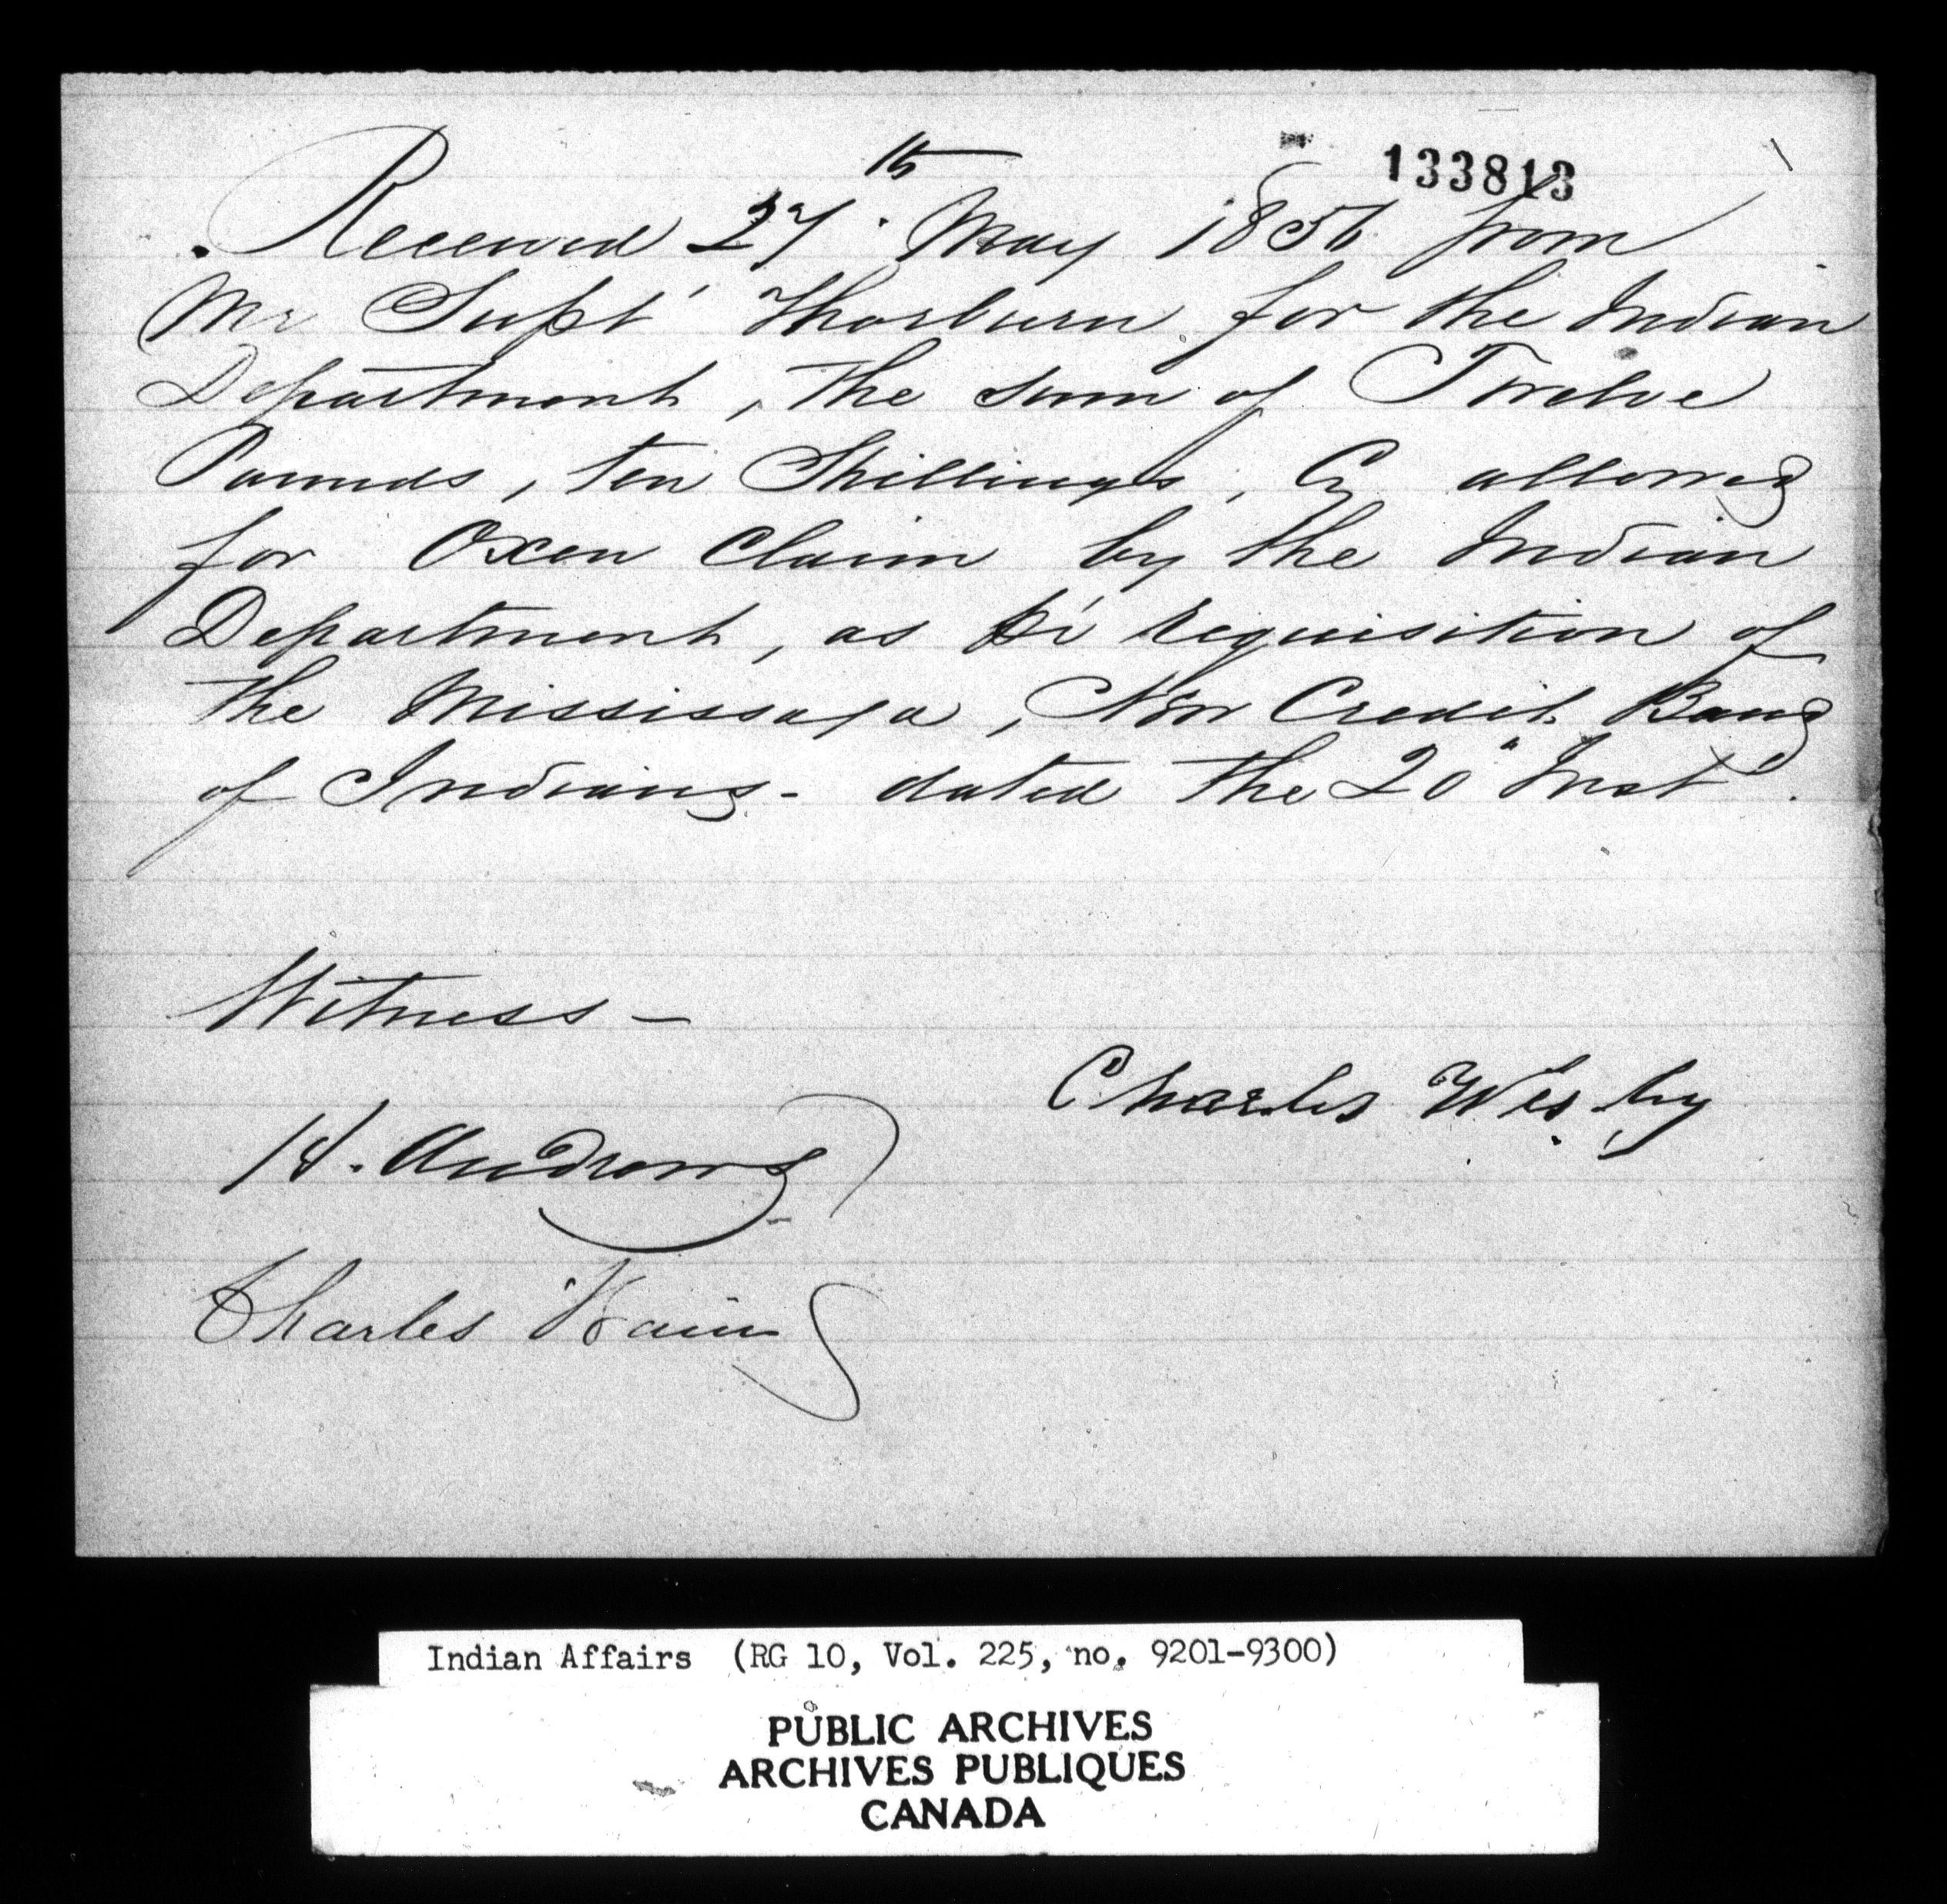 133813
Received 27th May 1856 from
Mr Supt Thorburn for the Indian
Department, the sum of Twelve
Pounds, ten Shillings, Cy allowed
for Oxen Claim by the Indian
Department, as requisition of
the Mississaga, New Credit Band
of Indians - dated the 20th Inst.
Witness -
Charles Wesly
H. Andrews
Charles
Indian Affairs (RG 10, Vol. 225, no. 9201-9300)
PUBLIC ARCHIVES
ARCHIVES PUBLIQUES
CANADA